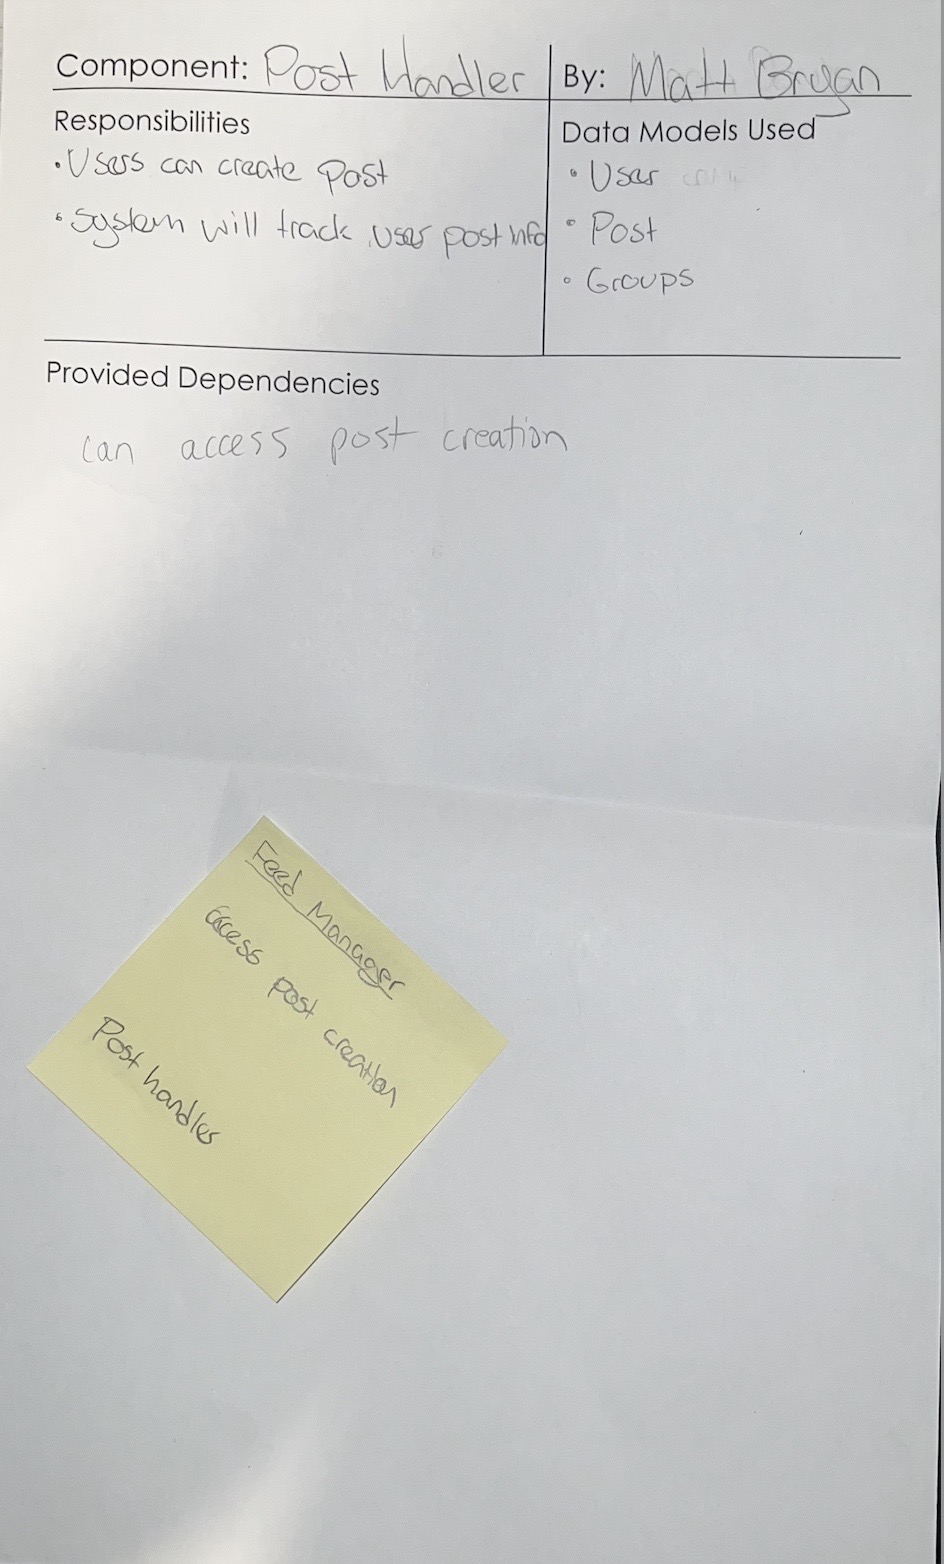 Component: Post Handler
By: Matt Bryan
Responsibilities
• Users can create Post
• System will track user post info
Data Models Used
• User
• Post
• Groups
Provided Dependencies
can access post creation
Feed Manager
access post creation
Post handler